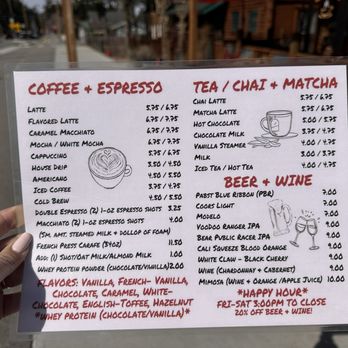 COFFEE + ESPRESSO
LATTE 5.75 / 6.75
FLAVORED LATTE 6.75 / 7.75
CARAMEL MACCHIATO 6.75 / 7.75
MOCHA / WHITE MOCHA 6.75 / 7.75
CAPPUCCINO 5.75 / 6.75
HOUSE DRIP 3.50 / 4.50
AMERICANO 4.50 / 5.50
ICED COFFEE 3.75 / 4.75
COLD BREW 4.50 / 5.50
DOUBLE ESPRESSO (2) 1-OZ ESPRESSO SHOTS 3.25
MACCHIATO (2) 1-OZ ESPRESSO SHOTS 4.00
(SM. AMT. STEAMED MILK + DOLLOP OF FOAM)
FRENCH PRESS CARAFE (34OZ) 11.50
ADD: (1) SHOT/OAT MILK/ALMOND MILK 1.00
WHEY PROTEIN POWDER (CHOCOLATE/VANILLA) 2.00
FLAVORS: VANILLA, FRENCH-VANILLA,
CHOCOLATE, CARAMEL, WHITE-
CHOCOLATE, ENGLISH-TOFFEE, HAZELNUT
*WHEY PROTEIN (CHOCOLATE/VANILLA)*
TEA / CHAI + MATCHA
CHAI LATTE 5.75 / 6.75
MATCHA LATTE 5.75 / 6.75
HOT CHOCOLATE 5.00 / 5.75
CHOCOLATE MILK 3.75 / 4.75
VANILLA STEAMER 4.00 / 5.00
MILK 3.00 / 3.75
ICED TEA / HOT TEA 4.00 / 4.75
BEER + WINE
PABST BLUE RIBBON (PBR) 7.00
COORS LIGHT 7.00
MODELO 7.00
VOODOO RANGER IPA 9.00
BEAR PUBLIC RACER IPA 9.00
CALI SQUEEZE BLOOD ORANGE 9.00
WHITE CLAW - BLACK CHERRY 9.00
WINE (CHARDONNAY + CABERNET) 9.00
MIMOSA (WINE + ORANGE/APPLE JUICE) 10.00
*HAPPY HOUR*
FRI-SAT 3:00PM TO CLOSE
20% OFF BEER + WINE!